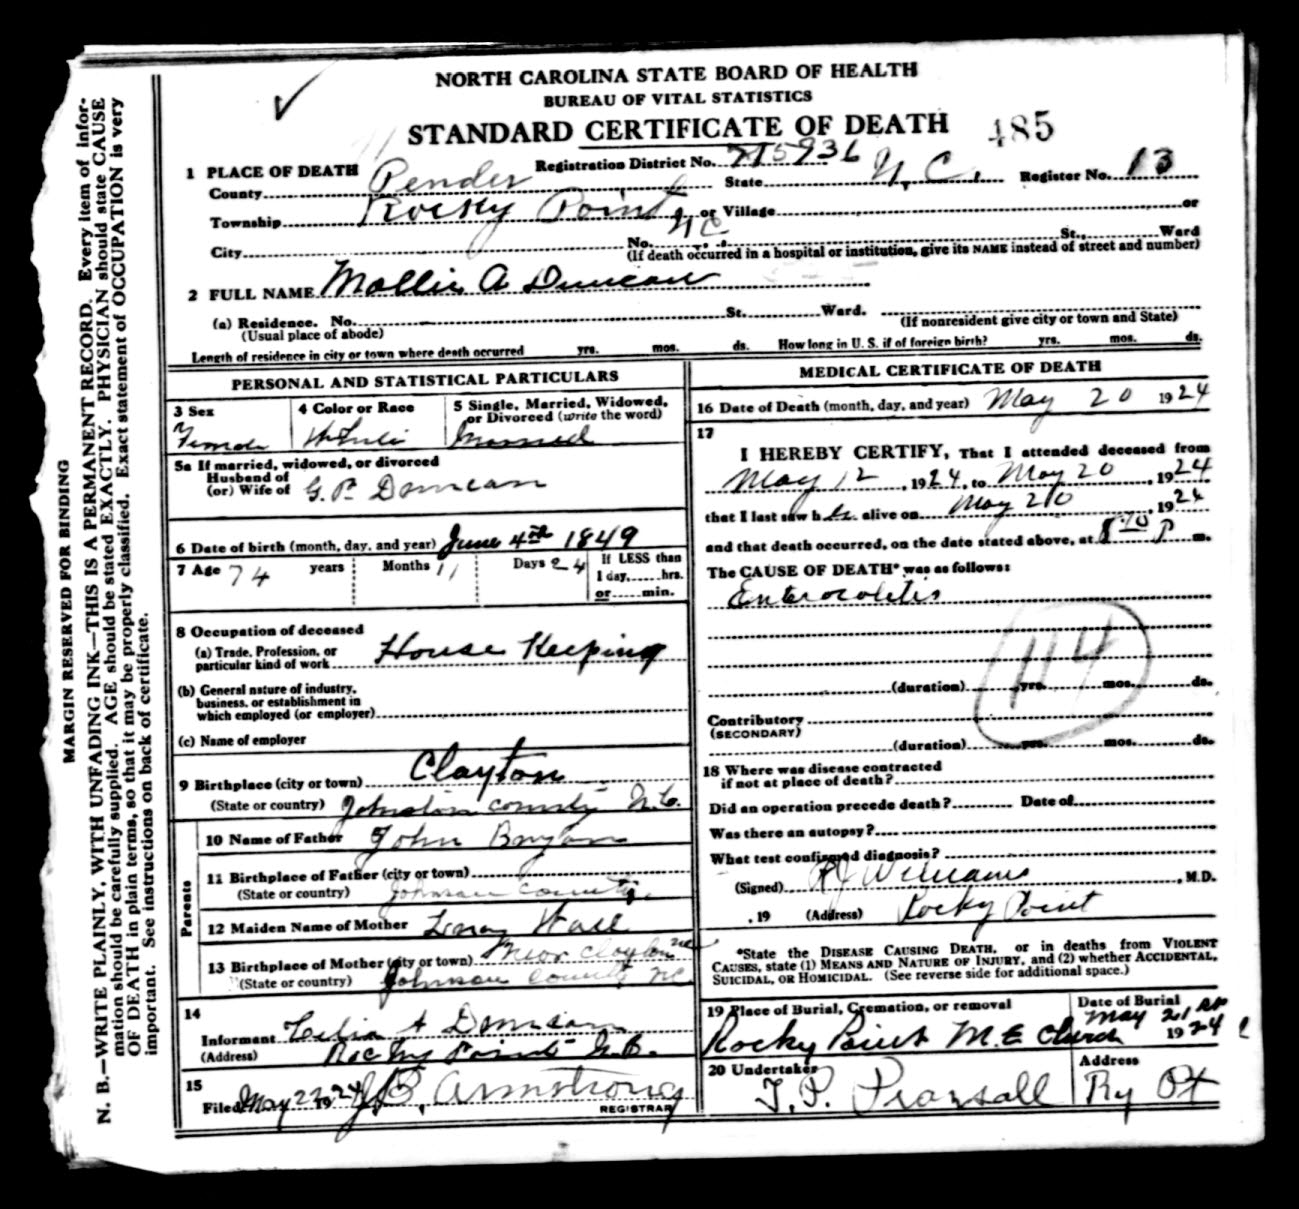 NORTH CAROLINA STATE BOARD OF HEALTH
BUREAU OF VITAL STATISTICS
STANDARD CERTIFICATE OF DEATH 485
1 PLACE OF DEATH Registration District No. 715936 Register No. 13
County Pender State N.C.
Township Rocky Point N.C. or Village or
City No. St., Ward
(If death occurred in a hospital or institution, give its NAME instead of street and number)
2 FULL NAME Mollie A Duncan
(a) Residence. No. St. Ward.
(Usual place of abode) (If nonresident give city or town and State)
Length of residence in city or town where death occurred yrs. mos. ds. How long in U. S. if of foreign birth? yrs. mos. ds.
PERSONAL AND STATISTICAL PARTICULARS
3 Sex 4 Color or Race 5 Single, Married, Widowed, or Divorced (write the word)
Female White Married
5a If married, widowed, or divorced
Husband of
(or) Wife of G. P. Duncan
6 Date of birth (month, day, and year) June 4th 1849
7 Age 74 years Months 11 Days 24 If LESS than
1 day, hrs.
or min.
8 Occupation of deceased
(a) Trade, Profession, or
particular kind of work House Keeping
(b) General nature of industry,
business, or establishment in
which employed (or employer)
(c) Name of employer
9 Birthplace (city or town) Clayton
(State or country) Johnston county N.C.
Parents
10 Name of Father John Bryan
11 Birthplace of Father (city or town)
(State or country) Johnson County
12 Maiden Name of Mother Wall
13 Birthplace of Mother (city or town) Near Clayton
(State or country) Johnson County NC
14
Informant A Duncan
(Address) Rocky Point N.C.
15
Filed May 22 1924 J.B. Armstrong
REGISTRAR
MEDICAL CERTIFICATE OF DEATH
16 Date of Death (month, day, and year) May 20 1924
17
I HEREBY CERTIFY, That I attended deceased from
May 12, 1924, to May 20, 1924
that I last saw her alive on May 20, 1924
and that death occurred, on the date stated above, at P m.
The CAUSE OF DEATH* was as follows:
Enterocolitis
114
(duration) yrs. mos. ds.
Contributory
(SECONDARY)
(duration) yrs. mos. ds.
18 Where was disease contracted
if not at place of death?
Did an operation precede death? Date of
Was there an autopsy?
What test confirmed diagnosis?
(Signed) R J Williams, M.D.
, 19 (Address) Rocky Point
*State the DISEASE CAUSING DEATH, or in deaths from VIOLENT
CAUSES, state (1) MEANS AND NATURE OF INJURY, and (2) whether ACCIDENTAL,
SUICIDAL, OR HOMICIDAL. (See reverse side for additional space.)
19 Place of Burial, Cremation, or removal Date of Burial
Rocky Point M.E Church May 21st 1924
20 Undertaker Address
T. P. Pearsall Ry Pt
MARGIN RESERVED FOR BINDING
N. B.—WRITE PLAINLY, WITH UNFADING INK—THIS IS A PERMANENT RECORD. Every item of infor-
mation should be carefully supplied. AGE should be stated EXACTLY. PHYSICIAN should state CAUSE
OF DEATH in plain terms, so that it may be properly classified. Exact statement of OCCUPATION is very
important. See instructions on back of certificate.